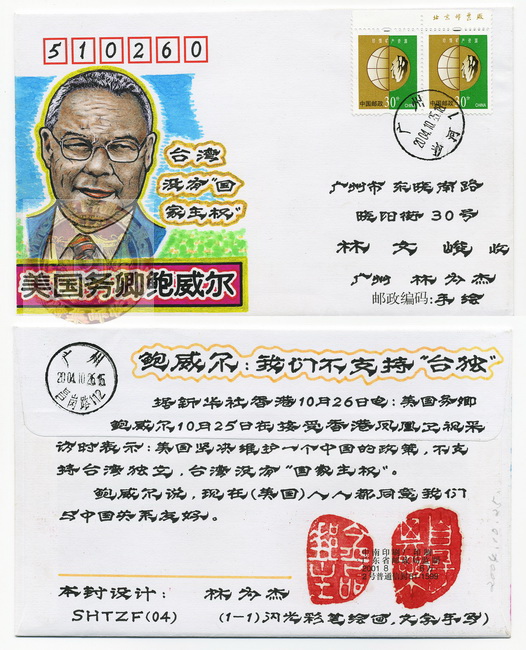 510260
台湾
没有"国
家主权"
美国务卿鲍威尔
中国邮政 30分 CHINA
中国邮政 30分 CHINA
广州
2004.10.25.18
广州市 东晓南路
晓阳街 30号
林文峻 收
广州 林为杰
邮政编码: 手绘
广州
2004.10.26.15
昌岗路112
鲍威尔:我们不支持"台独"
据新华社香港10月26日电:美国务卿
鲍威尔10月25日在接受香港凤凰卫视采
访时表示:美国坚决维护一个中国的政策,不支
持台湾独立,台湾没有"国家主权"。
鲍威尔说,现在(美国)人人都同意我们
与中国关系友好。
2001 8
2号普通信封
本封设计: 林为杰
SHTZF(04) (1-1)闪光彩笔绘画,文字手写)
2004.10.25.